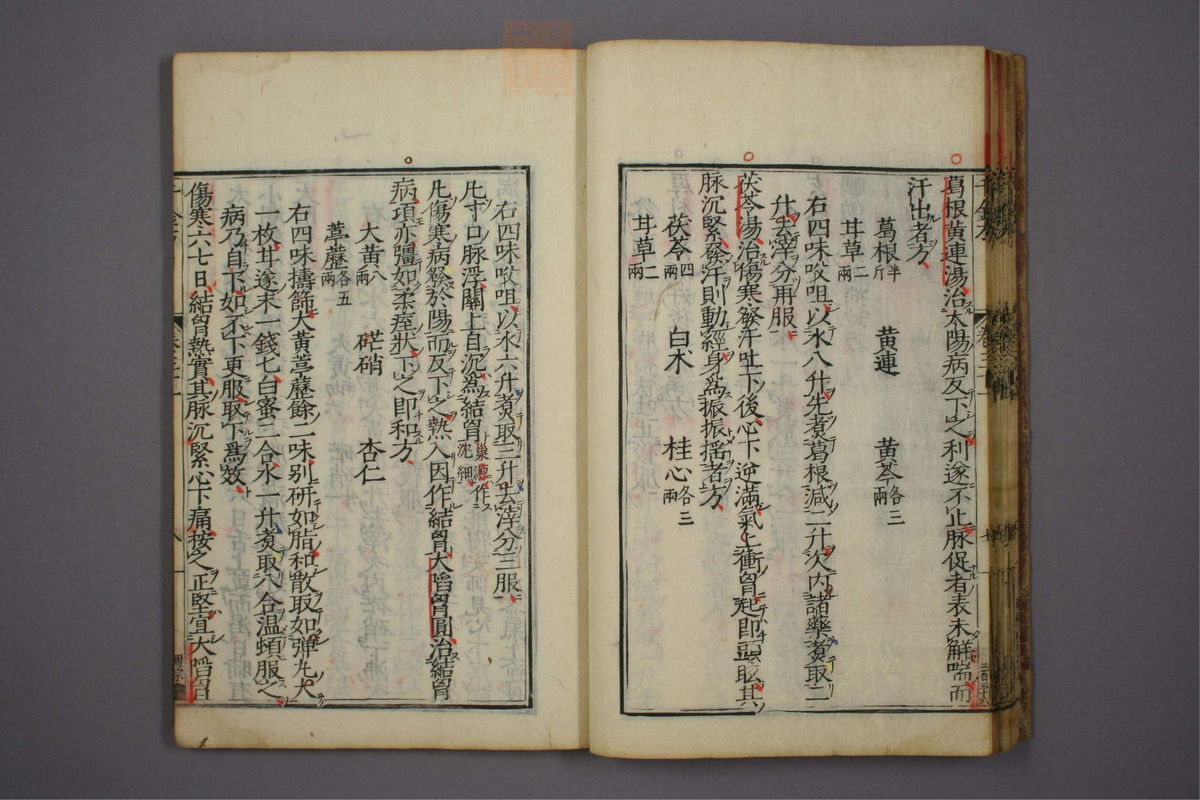 葛根黃連湯治太陽病反下之利遂不止脉促者表未觧喘而
汗出者方
葛根半斤 黃連 黃芩各三兩
耳草二兩
右四味㕮咀以水八升先煑葛根減二升次內諸藥煑取二
升去滓分再服
茯苓湯治傷寒發汗吐下後心下逆滿氣上衝胷起即頭眩其
脉沉緊發汗則動經身爲振振揺者方
茯苓四兩 白术 桂心各三兩
耳草二兩
右四味㕮咀以水六升煑取三升去滓分三服
凡寸口脉浮關上自沉爲結胷巢源作沈細
凡傷寒病發於陽而反下之熱入因作結胷大陷胷圓治結胷
病項亦彊如柔痙狀下之即和方
大黃八兩 芒硝 杏仁
葶藶各五兩
右四味擣篩大黃葶藶餘二味别研如脂和散取如彈丸大
一枚耳遂末一錢七白蜜二合水一升煑取八合温頓服之
病乃自下如不下更服取下爲效
傷寒六七日結胷熱實其脉沉緊心下痛按之正堅宜大陷胷
千金方
卷三十一